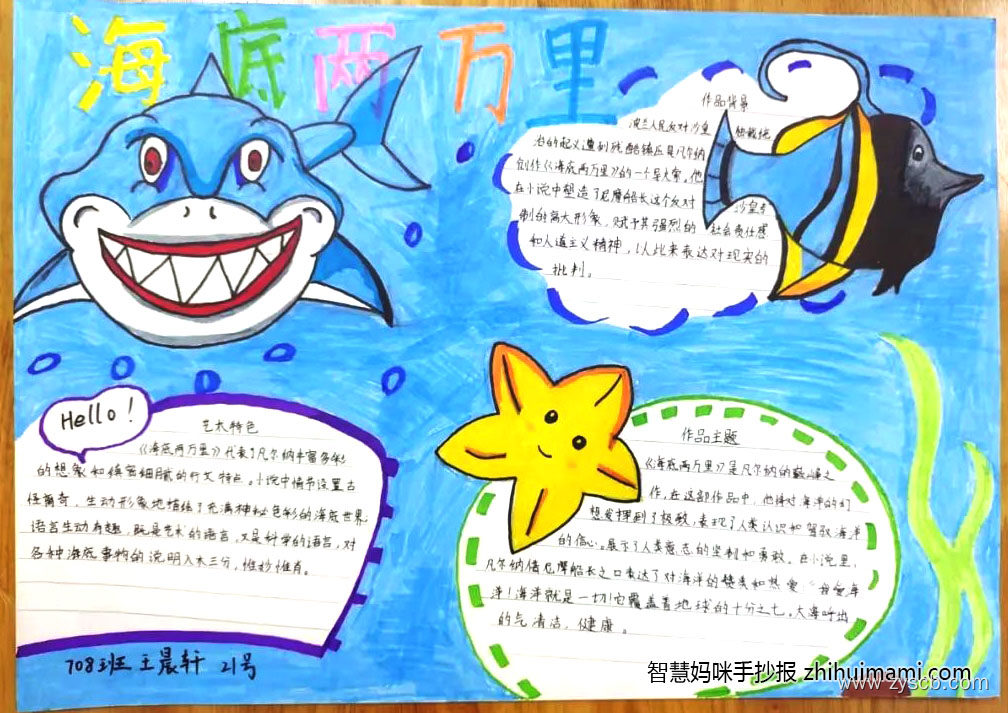 海底两万里
作品背景
波兰人民反对沙皇独裁统
治的起义遭到残酷镇压是凡尔纳
创作《海底两万里》的一个导火索。他
在小说中塑造了尼摩船长这个反对沙皇专
制的高大形象，赋予其强烈的社会责任感
和人道主义精神，以此来表达对现实的
批判。
Hello!
艺术特色
《海底两万里》代表了凡尔纳丰富多彩
的想象和缜密细腻的行文特点。小说中情节设置古
怪离奇，生动形象地描绘了充满神秘色彩的海底世界
语言生动有趣，既是艺术的语言，又是科学的语言，对
各种海底事物的说明入木三分，惟妙惟肖。
作品主题
《海底两万里》是凡尔纳的巅峰之
作，在这部作品中，他将对海洋的幻
想发挥到了极致，表现了人类认识和驾驭海洋
的信心。展示了人类意志的坚韧和勇敢。在小说里，
凡尔纳借尼摩船长之口表达了对海洋的赞美和热爱"我爱海
洋！海洋就是一切！它覆盖着地球的十分之七。大海呼出
的气清洁、健康。
708班 王晨轩 21号
智慧妈咪手抄报 zhihuimami.com
www.zyscb.com